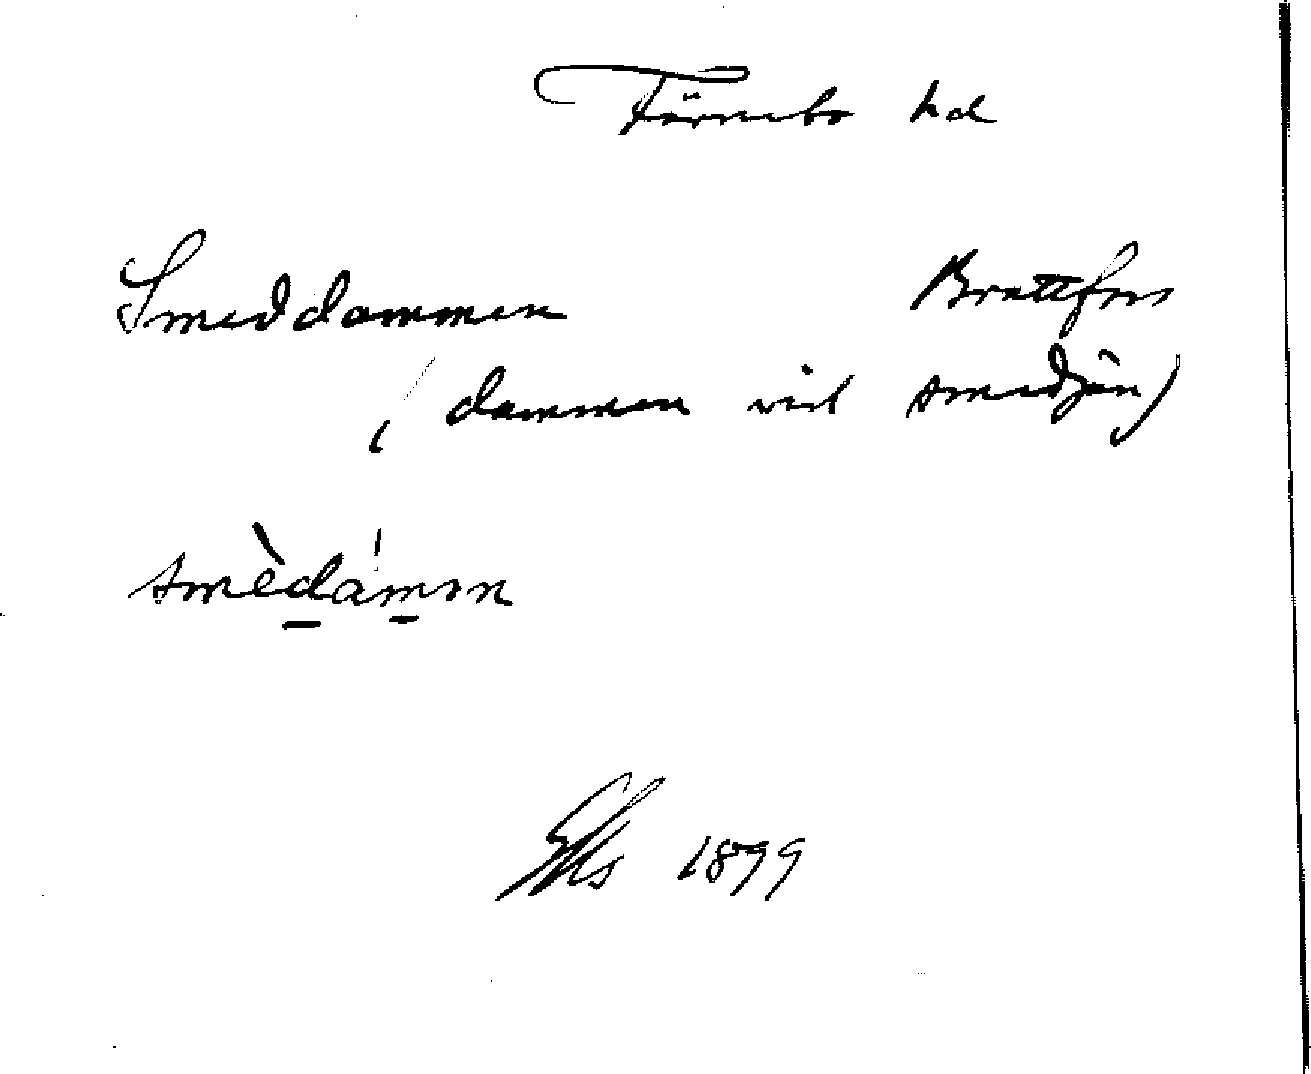 Färnebo hd
Smeddammen Brattfors
(dammen vid smedjan)
smèdámən
1899